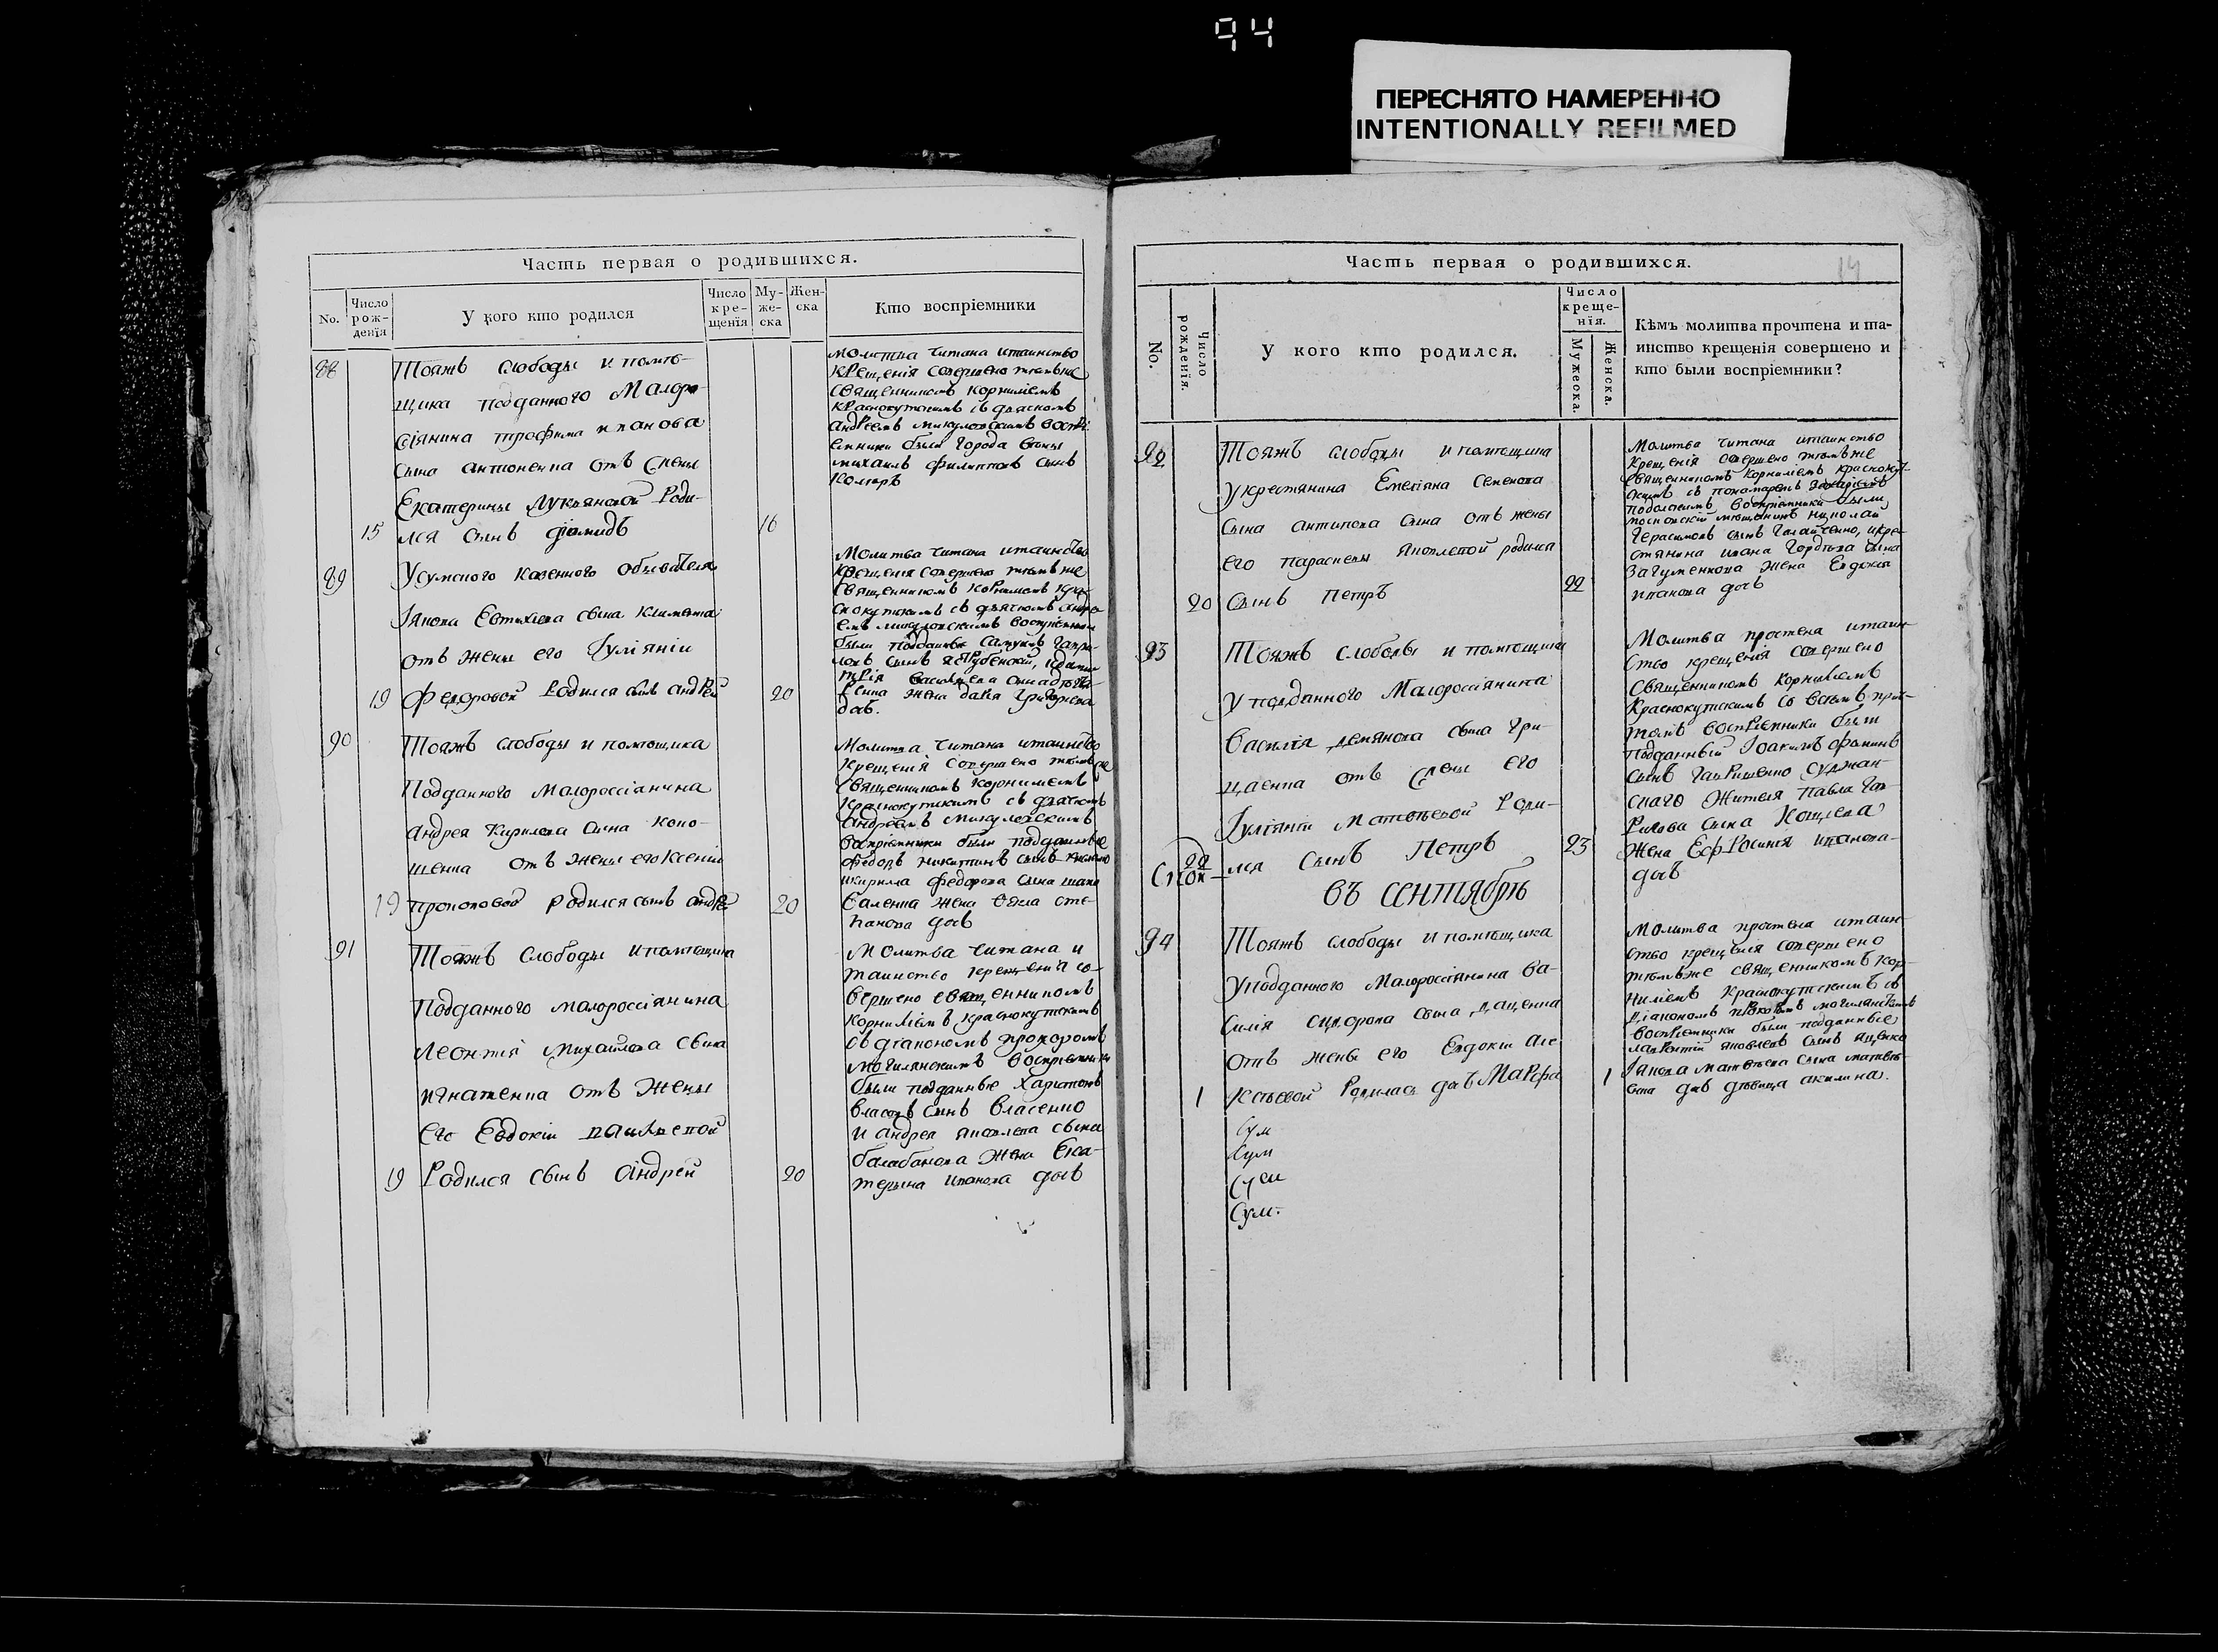 94
ПЕРЕСНЯТО НАМЕРЕННО
INTENTIONALLY REFILMED
Часть первая о родившихся.
No.
Число рож- денїя
У кого кто родился
Число кре- щенїя
Му- же- ска
Жен- ска
Кто воспрїемники
88
Тояжъ слободы и помѣ-
щика подданного Малоро-
сіянина трофима иванова
сына антоненка отъ жены
Екатерины Лукьяновой Роди-
15 лся сынъ діомидъ 16
молитва читана итаинство
крещенія совершено тѣмъже
священникомъ корниліемъ
краснокутскимъ съ дьячкомъ
андреемъ микуловскимъ воспрі
емники были города
михаилъ филиповъ сынъ
89
Усумского казенного обывателя
Іякова Евтихіева сына климента
отъ жены его Іуліяніи
19 Федоровой Родился сынъ андрей 20
Молитва читана итаинство
крещенія совершено тѣмъже
священникомъ корниліемъ кра-
снокутскимъ съ дьячкомъ андре-
емъ микуловскимъ воспріемники
были подданные самуилъ гаври-
ловъ сынъ
жена дарія григорьева
дочь.
90
Тояжъ слободы и помѣщика
Подданного малороссіянина
андрея кирилова сына коно-
шенка отъ жены его Ксеніи
19 прокоповой родился сынъ андрей 20
Молитва читана итаинство
крещенія совершено тѣмъже
священникомъ корниліемъ
краснокутскимъ съ дьячкомъ
андреемъ микуловскимъ
воспріемники были подданные
федоръ никитинъ сынъ
икирила федорова сына шапо
валенка жена Фекла сте-
панова дочь
91
Тояжъ слободы и помѣщика
Подданного малороссіянина
леонтія михайлова сына
игнатенка отъ жены
его Евдокіи павловой
19 Родился сынъ Андрей 20
Молитва читана и
таинство крещенія со-
вершено священникомъ
корниліемъ краснокутскимъ
съ діакономъ прохоромъ
могилянскимъ воспріемники
были подданные харитонъ
власовъ сынъ власенко
и андрея яковлева сына
балабанова жена Ека-
терина иванова дочь
Часть первая о родившихся.
14
No.
Число рожденїя.
У кого кто родился.
Число креще- нїя.
Мужеска.
Женска.
Кѣмъ молитва прочтена и та-
инство крещенїя совершено и
кто были воспрїемники?
92
Тояжъ слободы и помѣщика
укрестянина Емеліяна Семенова
сына антипова сына отъ жены
его параскевы яковлевой родился
20 сынъ Петръ 22
Молитва читана итаинство
крещенія совершено тѣмъже
священникомъ корниліемъ краснокут-
скимъ съ пономаремъ захаріемъ
подольскимъ воспріемники были
московскій мѣщанинъ николай
герасимовъ сынъ икре-
стянина ивана гордѣева сына
загуменкова жена Евдокія
иванова дочь
93
Тояжъ слободы и помѣщика
У подданного Малороссіянина
Василія демянова сына гри-
цаенка отъ жены его
Іуліяніи Матвѣевой Роди-
22 лся сынъ Петръ 23
Молитва прочтена итаин-
ство крещенія совершено
священникомъ корниліемъ
Краснокутскимъ со всѣмъ при-
томъ воспріемники были
подданный Іоакимъ фоминъ
сынъ гавришенко суджан-
скаго жителя павла гав-
рилова сына Кощеева
жена Ефросинія иванова-
дочь
въ сентябрѣ
94
Тояжъ слободы и помѣщика
Уподданного Малороссіянина Ва-
силія сидорова сына даценка
отъ жены его Евдокіи але
1 ксѣевой Родилась дочь Марфа 1
Молитва прочтена итаин-
ство крещенія совершено
тѣмъже священникомъ кор-
ниліемъ краснокутскимъ съ
діакономъ прохоромъ могилянскимъ
воспріемники были подданные
лаврентій яковлевъ сынъ яценко
Іякова матвѣева сына матвѣе-
ва дочь дѣвица акилина.
Сум
Сум
Сум.